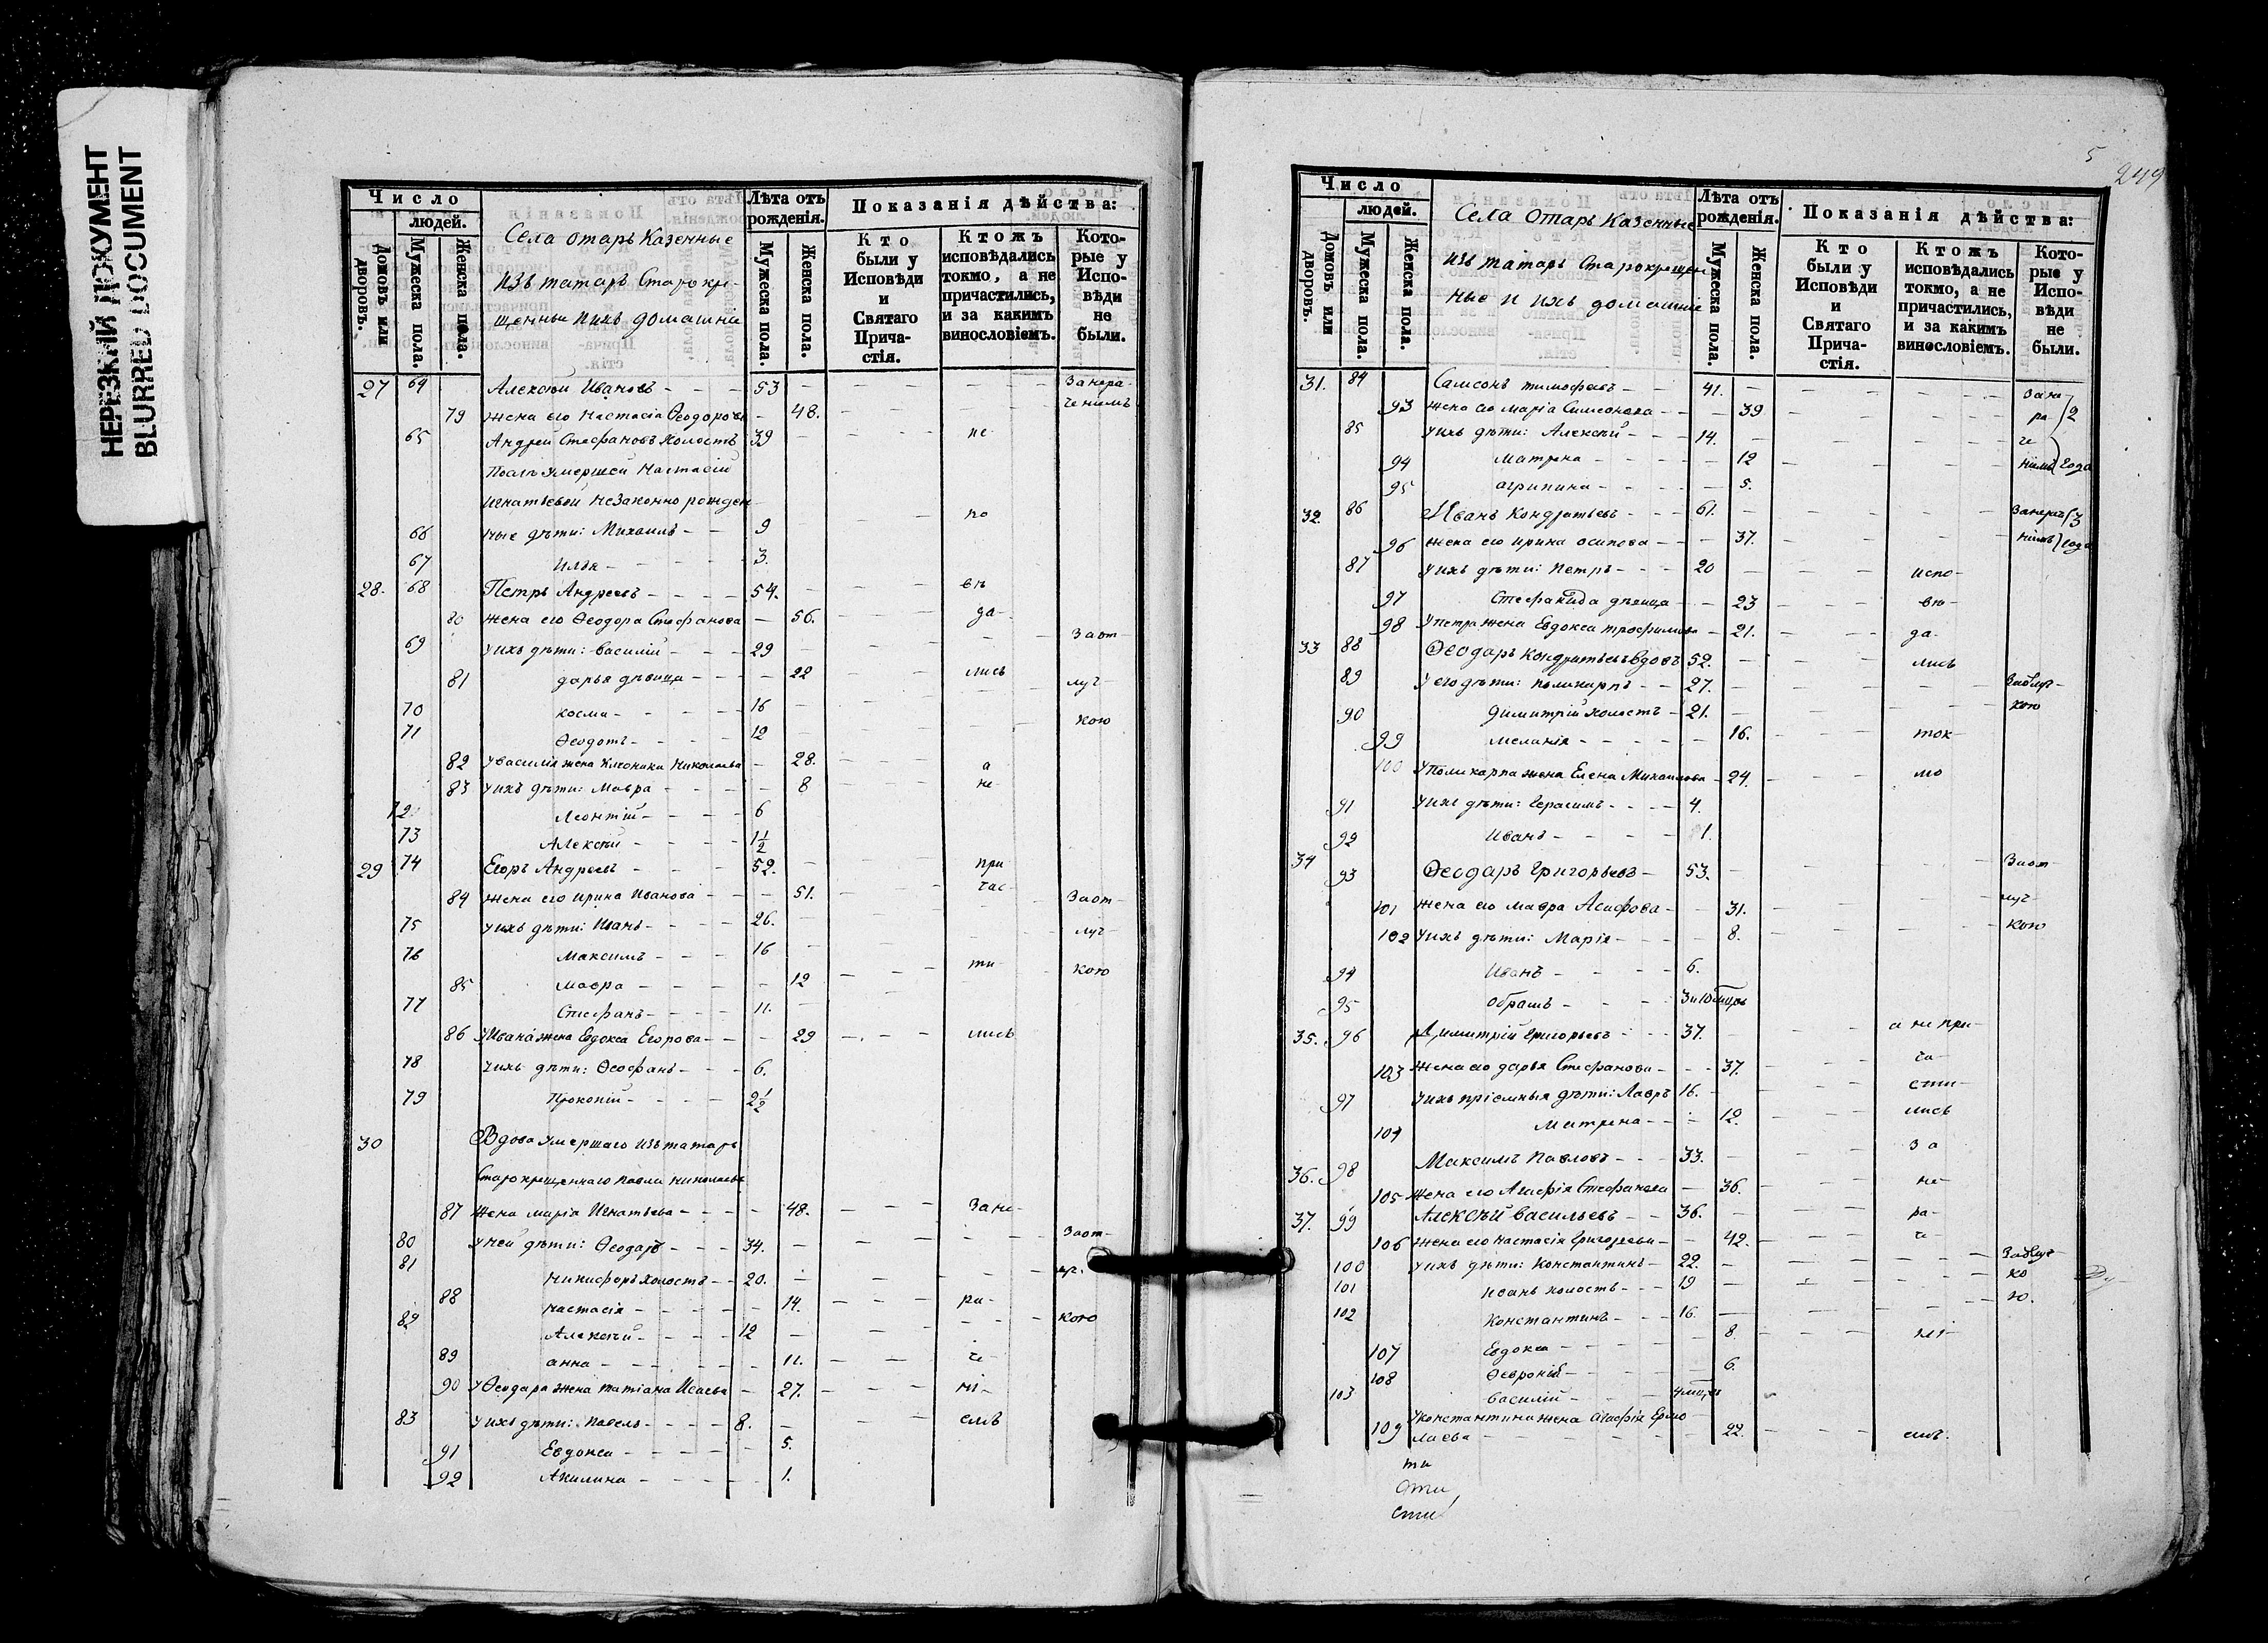 НЕРЕЗКИЙ ДОКУМЕНТ
BLURRED DOCUMENT
Число
людей.
Домовъ или дворовъ.
Мужеска пола.
Женска пола.
Села Отаръ Казенные
изъ татаръ Старокре-
щенные и ихъ домашніе
Лѣта отъ рожденія.
Мужеска пола.
Женска пола.
Показанія дѣйства:
Кто были у Исповѣди и Святаго Прича-стія.
Ктожъ исповѣдались токмо, а не причастились, и за какимъ винословіемъ.
Кото-рые у Испо-вѣди не были.
27 64 Алексѣй Ивановъ - - - 53 - - - - - Занера-
79 жена его Настасія Ѳеодорова - 48. - - - - - ченіемъ
65 Андрей Стефановъ холостъ 39 - - - не-
Послѣ умершей Настасіи
Игнатьевой незаконно рожден-
ные дѣти: - - по
66 Михаилъ - - 9
67 Илья - - - - - 3.
28. 68 Петръ Андреевъ - - - - 54. - - - вѣ
80 жена его Ѳеодора Стефанова - 56. - - - да-
69 у ихъ дѣти: Василій - - - 29 - - - - - За от-
81 дарья дѣвица - - - - 22 - - - лись
луч-
70 косма - - - - 16 -
71 Ѳеодотъ - - - - 12 - - - - - кою
82 у василія жена Николаева - 28. - - - а
83 у ихъ дѣти: Мавра - - - - - 8 - - - не-
72 Леонтій - - - - 6
73 Алексѣй - - - - 1½
29 74 Егоръ Андреевъ - - - - 52. - - - при
84 жена его Ирина Иванова - - - 51. - - - час-
За от-
75 у ихъ дѣти: Иванъ - - - - 26. - - - - - луч-
76 Максимъ - - - 16 -
85 мавра - - - - - 12 - - - ти- - кою
77 Стефанъ - - - - 11. -
86 у Ивана жена Евдокеа Егорова - - - 29 - - - лись
78 у ихъ дѣти: Ѳеофанъ - - - 6.
79 Прокопій - - - - 2½
30 Вдова умершаго изъ татаръ
Старокрещеннаго Павла Николаева
87 жена марія Игнатьева - - - - 48. - - - За не-
80 у ней дѣти: Ѳеодоръ - - - 34. - - - - - За от-
81 Никифоръ холостъ - - 20. - - - - - луч.
88 настасія - - - - - 14. - - - ра-
82 Алексѣй - - - - 12 - - - - - кою
89 анна - - - - - - 11. - - че-
90 у Ѳеодора жена татіана Исаева - 27. - - - ні-
83 у ихъ дѣти: Павелъ - - - - 8. - - - емъ
91 Евдокеа - - - - - 5.
92 Акилина - - - - - 1.
5
249
Число
людей.
Домовъ или дворовъ.
Мужеска пола.
Женска пола.
Села Отаръ Казенные
изъ татаръ Старокрещен
ные и ихъ домашніе
Лѣта отъ рожденія.
Мужеска пола.
Женска пола.
Показанія дѣйства:
Кто были у Исповѣди и Святаго Прича-стія.
Ктожъ исповѣдались токмо, а не причастились, и за какимъ винословіемъ.
Кото-рые у Испо-вѣди не были.
31. 84 Самсонъ тимофеевъ - - 41. - - - - - За не-
93 жена его Марія Симеонова - - - 39 - - - - - ра- 2
85 у ихъ дѣти: Алексѣй - - - 14. - - - - - че
94 матрена - - - - - 12 - - - - - ніемъ года
95 агрипина - - - - - 5.
32. 86 Иванъ Кондратьевъ - - - 61. - - - - - Занерач 3
96 жена его ирина осипова - - - 37. - - - - ніемъ года
87 у ихъ дѣти: Петръ - - - 20 - - - испо-
97 Стефанида дѣвица - - 23 - - - вѣ-
98 у петра жена Евдокеа трофимова - 21. - - - да-
33 88 Ѳеодоръ Кондратьевъ вдовъ 52. - - - лись
89 у его дѣти: поликарпъ - - 27. - - - - - За отлуч-
90 Димитрій холостъ - 21. - - - - - кою
99 меланія - - - - - 16. - - - ток-
100 у Поликарпа жена Елена Михаилова - 24. - - - мо
91 у ихъ дѣти: Герасимъ - - - - 4.
92 Иванъ - - - - - 1.
34 93 Ѳеодоръ Григорьевъ - 53. - - - - - За от-
101 жена его мавра - - 31. - - - - - луч-
102 у ихъ дѣти: Марія - - - - 8. - - - - - кою
94 Иванъ - - - - 6.
95
35. 96 Димитрій Григорьевъ - - - 37. - - - а не при-
103 жена его дарья Стефанова - - - 37. - - - ча-
97 у ихъ пріемныя дѣти: Лавръ 16. - - - сти-
104 матрена - - - 12. - - - лись
36. 98 Максимъ Павловъ - - - 33. - - - за
105 жена его Агафія Стефанова - 36. - - - не-
37. 99 Алексѣй Васильевъ - - 36. - - - ра-
106 жена его настасія Григорьева - - 42. - - - че-
100 у ихъ дѣти: Константинъ - 22. - - - - - За отлуч-
101 Иванъ холостъ - - - 19 - - - - - ко
102 Константинъ - - - 16. - - - - - ю.
107 Евдокеа - - - - - 8. - - - ні-
108 Ѳевронія - - - - - 6.
103 Василій - - -
109 у константина жена агафія Ермо
лаева - - - - - - - 22. - - - емъ.
ти
сти